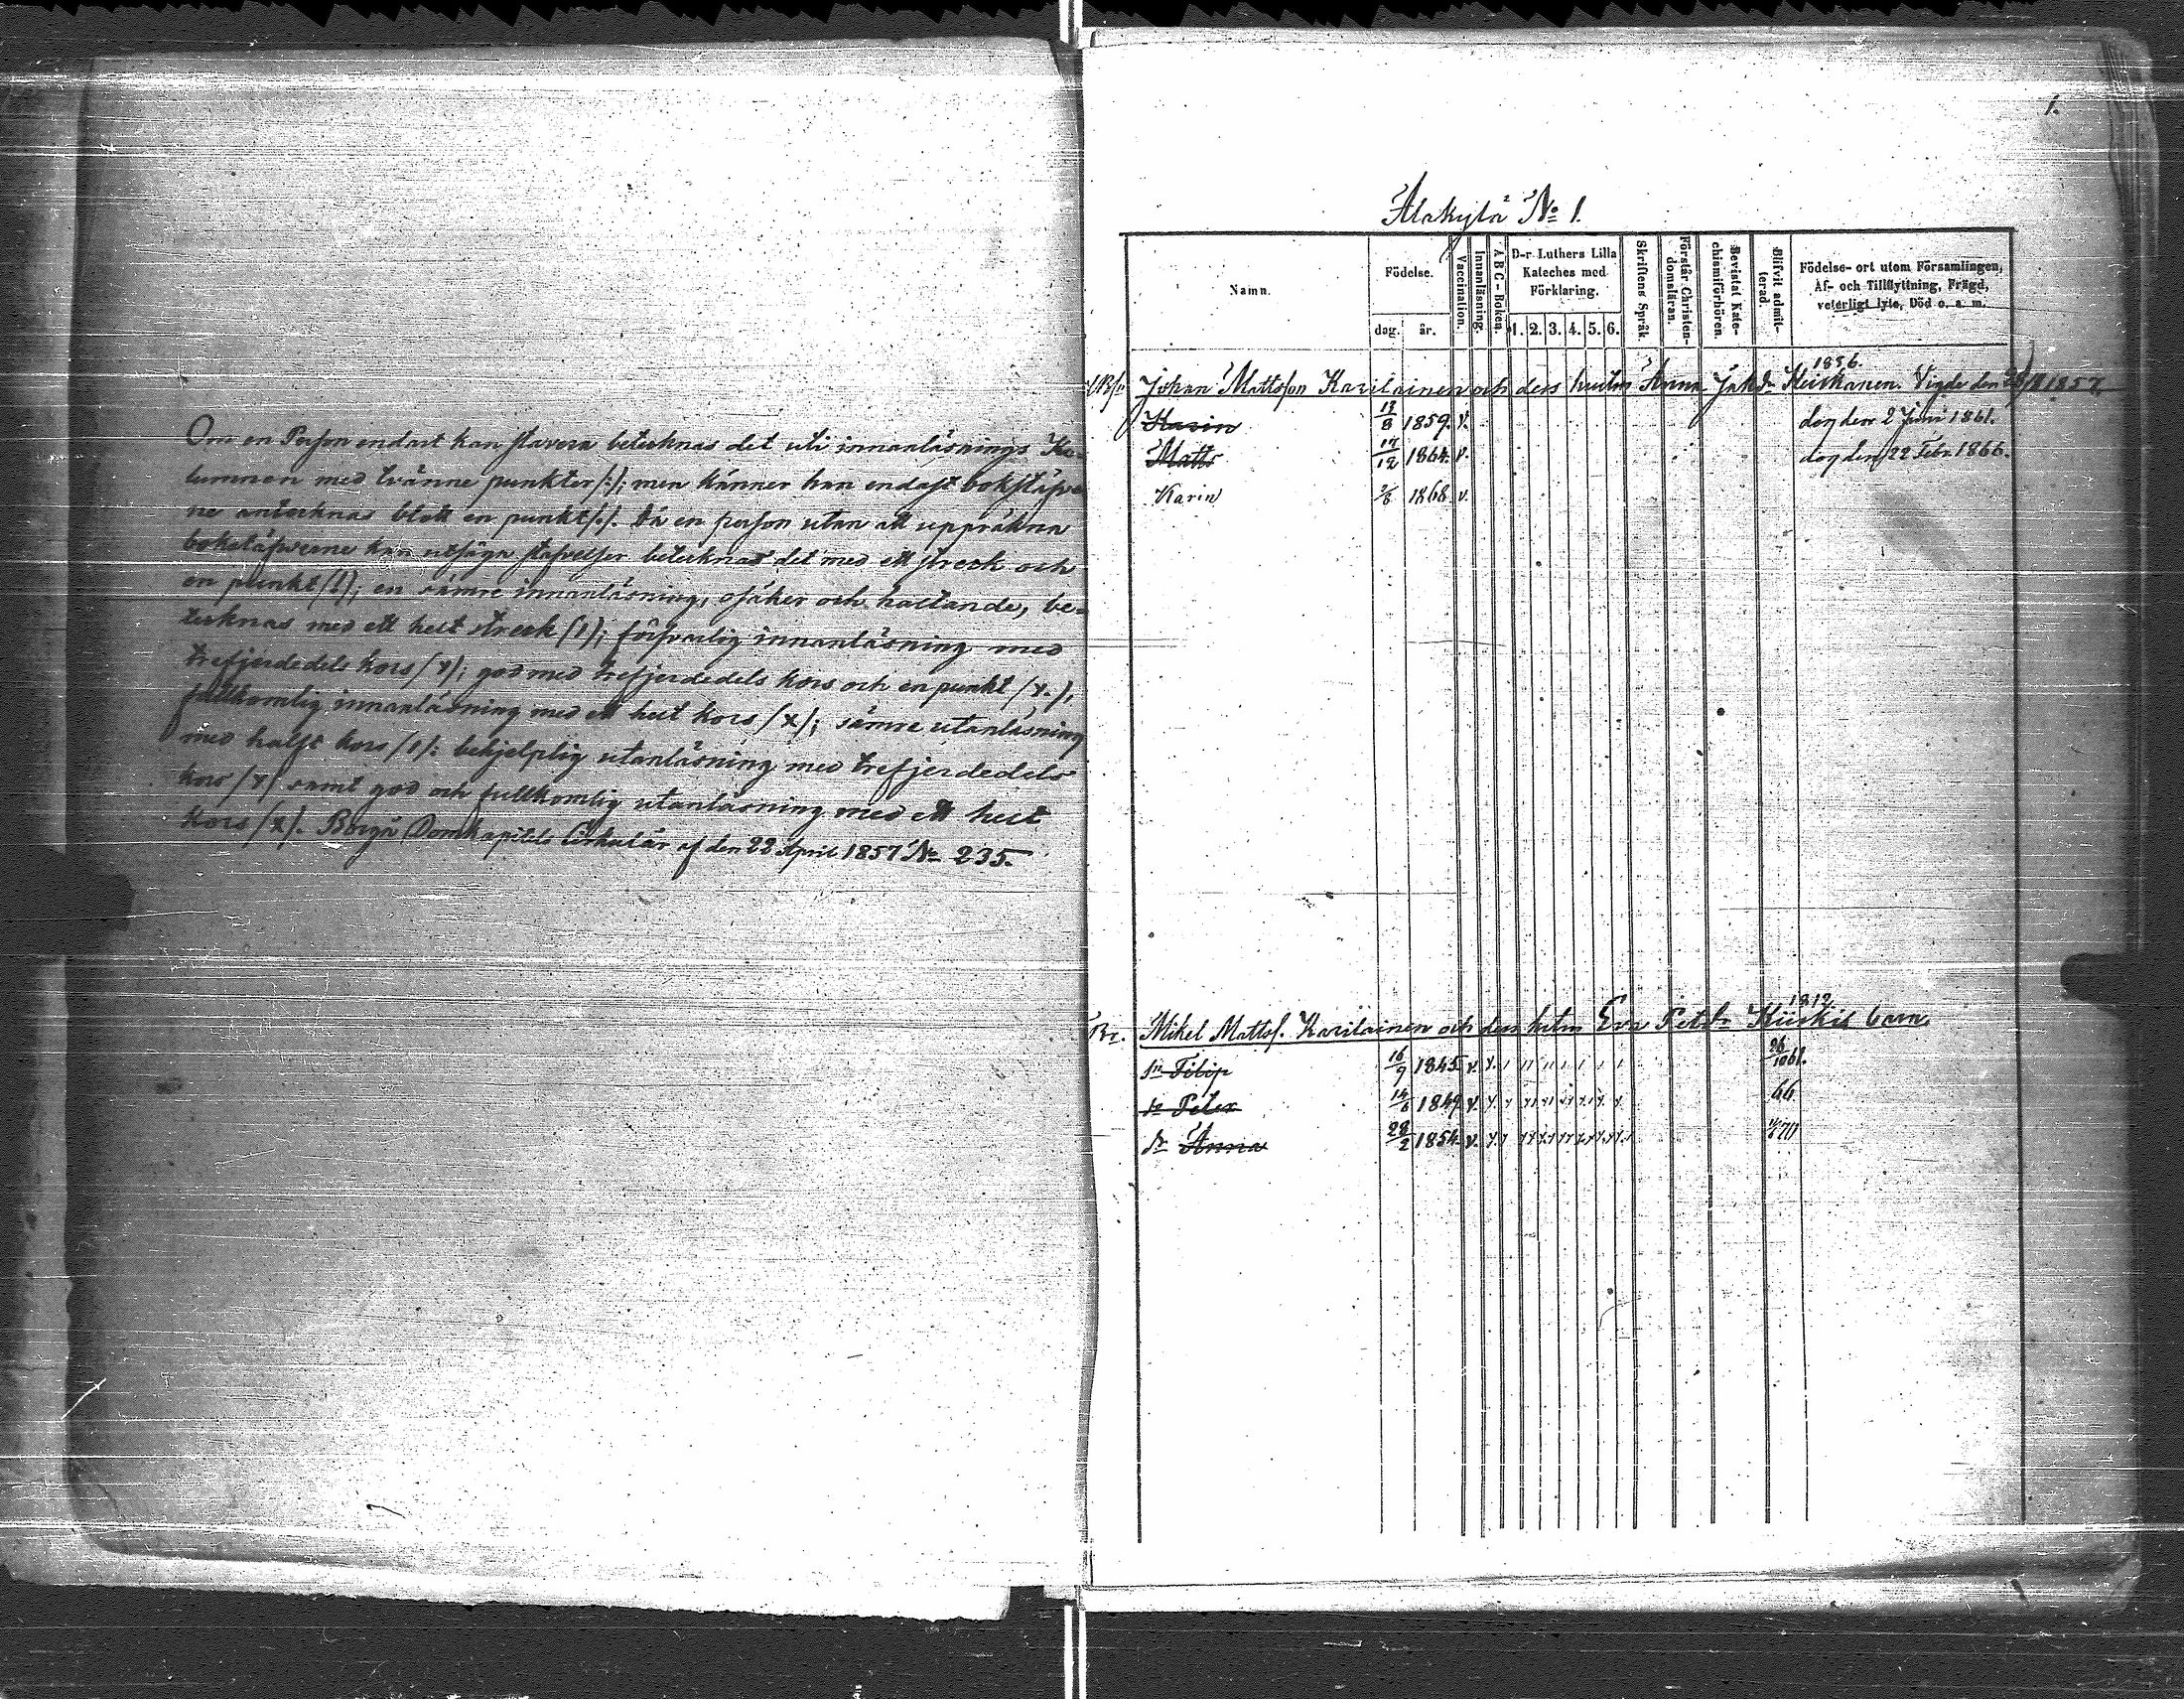 Om en Person endast kan stafvera betecknas det uti innanläsnings Ko-
lumnen med tvänne punkter /:/; men känner han endast bokstäfver
ne antecknas blott en punkt /./. Då en person utan att uppräkna
bokstäfverne kan utsäga stafvelser betecknas det med ett streck och
en punkt /!/; en sämre innanläsning, osäker och haltande, be-
tecknas med ett helt streck /1/; försvarlig innanläsning med
trefjerdedels kors /Y/; god med trefjerdedels kors och en punkt /Y./,
fullkomlig innanläsning med ett helt kors /X/; sämre utanläsning
med halft kors /1/: behjelplig utanläsning med trefjerdedels
kors /Y/ samt god och fullkomlig utanläsning med ett helt
kors /X/. Borgå Domkapitels Cirkulär af den 22 April 1857 No 235.
1.
Alakylä No 1.
Namn.
Födelse.
dag. år.
Vaccination.
Innanläsning.
A B C - Boken.
D-r Luthers Lilla
Kateches med
Förklaring.
1. 2. 3. 4. 5. 6.
Skriftens Språk
Förstår Christen-
domsläran.
Bevistat Kate-
chismiförhören.
Blifvit admit-
terad.
Födelse- ort utom Församlingen,
Af- och Tillflyttning, Frägd,
veterligt lyte, Död o. a. m.
1836.
Johan Mattsson Karilainen och dess hustru Anna Jakdr Heiskanen. Vigde den 1857
Karin 13/8 1859. v. dog den 2 Juni 1861.
Matts 17/12 1864. v. dog den 22 Febr. 1866.
Karin 2/8 1868 v.
1812
Br. Mikel Mattss. Karilainen och dess hustru Eva Petdr Kiiskis barn.
sn Filip 16/9 1845 v. Y. 26/10 61.
sn Peter 14/6 1849 v. Y. 66
dr Anna 28/2 1854 v. Y. 70